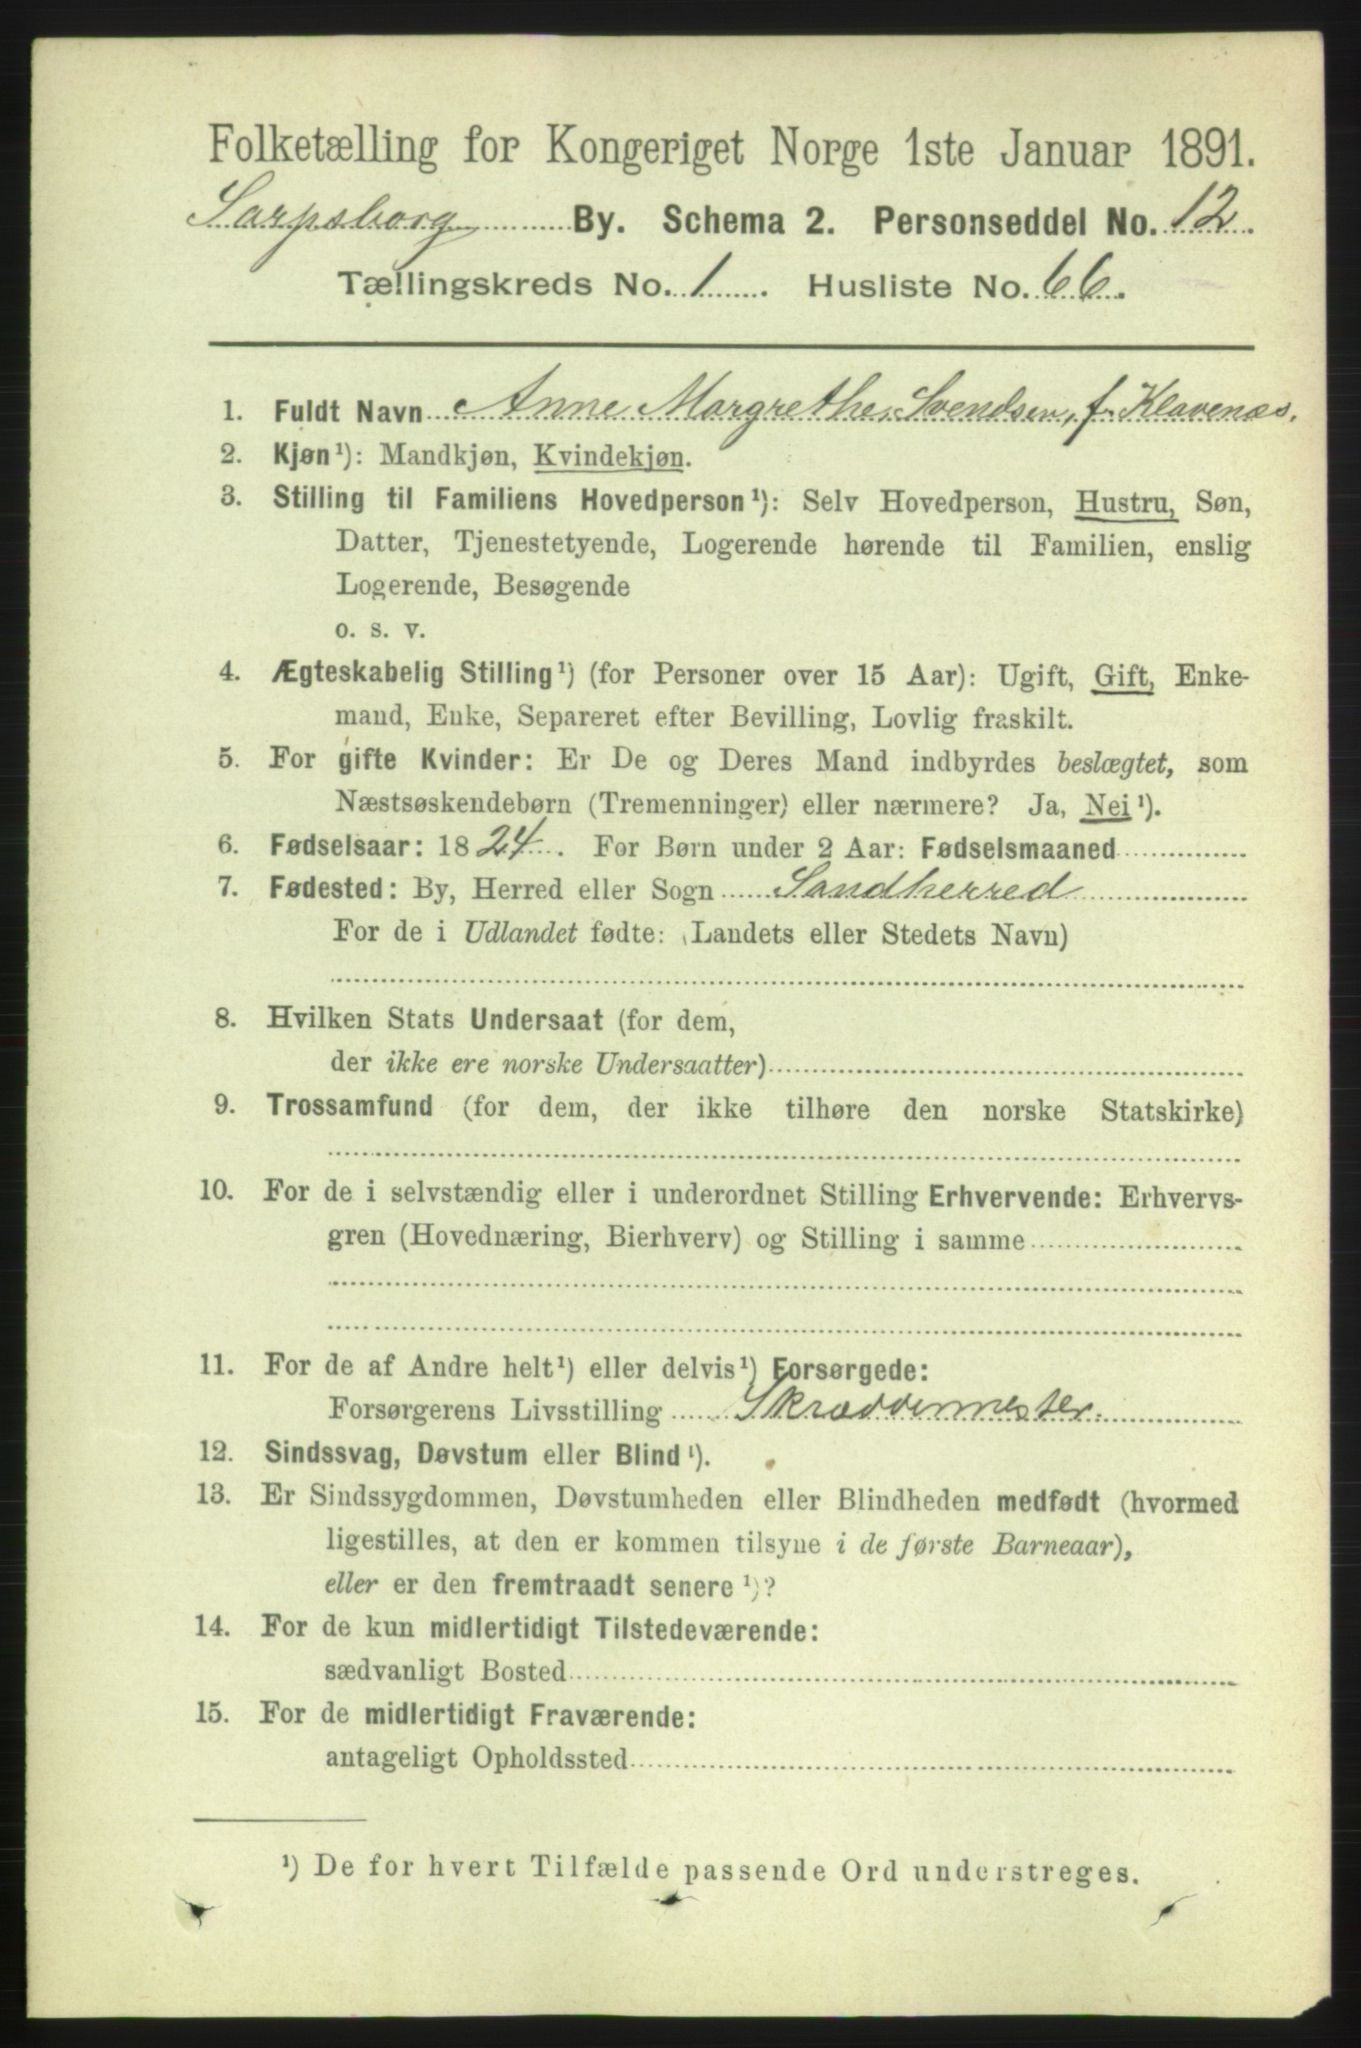 Folketælling for Kongeriget Norge 1ste Januar 1891.
Sarpsborg By. Schema 2. Personseddel No. 12.
Tællingskreds No. 1. Husliste No. 66.
1. Fuldt Navn Anne Margrethe Svendsen, f. Klavenæs.
2. Kjøn¹): Mandkjøn, Kvindekjøn.
3. Stilling til Familiens Hovedperson¹): Selv Hovedperson, Hustru, Søn,
Datter, Tjenestetyende, Logerende hørende til Familien, enslig
Logerende, Besøgende
o. s. v.
4. Ægteskabelig Stilling¹) (for Personer over 15 Aar): Ugift, Gift, Enke-
mand, Enke, Separeret efter Bevilling, Lovlig fraskilt.
5. For gifte Kvinder: Er De og Deres Mand indbyrdes beslægtet, som
Næstsøskendebørn (Tremenninger) eller nærmere? Ja, Nei¹).
6. Fødselsaar: 1824. For Børn under 2 Aar: Fødselsmaaned
7. Fødested: By, Herred eller Sogn Sandherred
For de i Udlandet fødte: (Landets eller Stedets Navn)
8. Hvilken Stats Undersaat (for dem,
der ikke ere norske Undersaatter)
9. Trossamfund (for dem, der ikke tilhøre den norske Statskirke)
10. For de i selvstændig eller i underordnet Stilling Erhvervende: Erhvervs-
gren (Hovednæring, Bierhverv) og Stilling i samme
11. For de af Andre helt¹) eller delvis¹) Forsørgede:
Forsørgerens Livsstilling Skræddermester.
12. Sindssvag, Døvstum eller Blind¹).
13. Er Sindssygdommen, Døvstumheden eller Blindheden medfødt (hvormed
ligestilles, at den er kommen tilsyne i de første Barneaar),
eller er den fremtraadt senere¹)?
14. For de kun midlertidigt Tilstedeværende:
sædvanligt Bosted
15. For de midlertidigt Fraværende:
antageligt Opholdssted
¹) De for hvert Tilfælde passende Ord understreges.